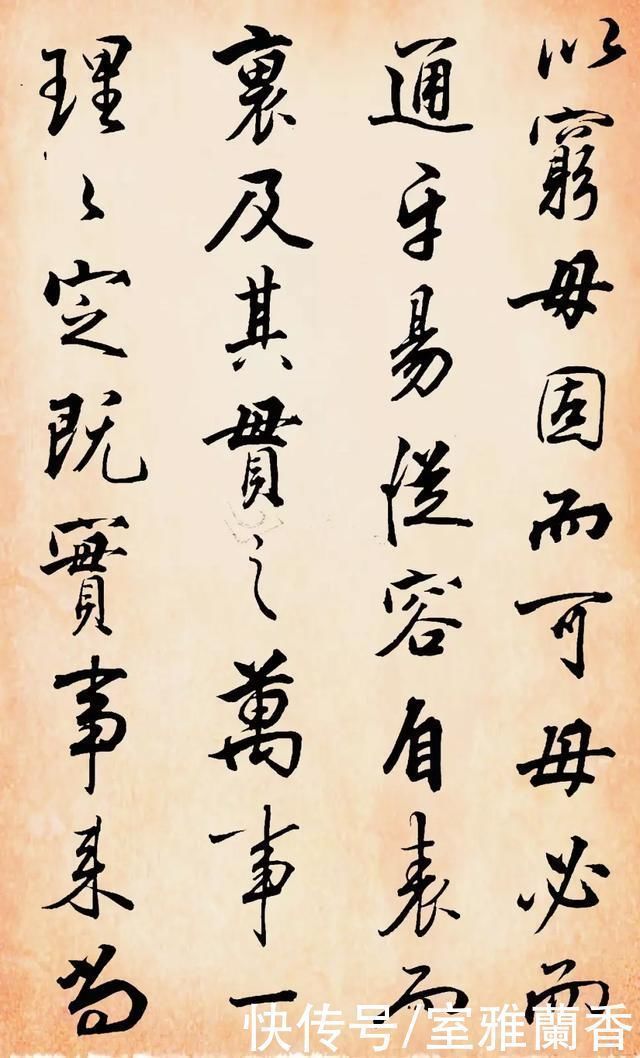 以窮毋固而可毋必而
通平易從容自表而
裏及其貫之萬事一
理〻定既實事来尚
快传号/室雅蘭香